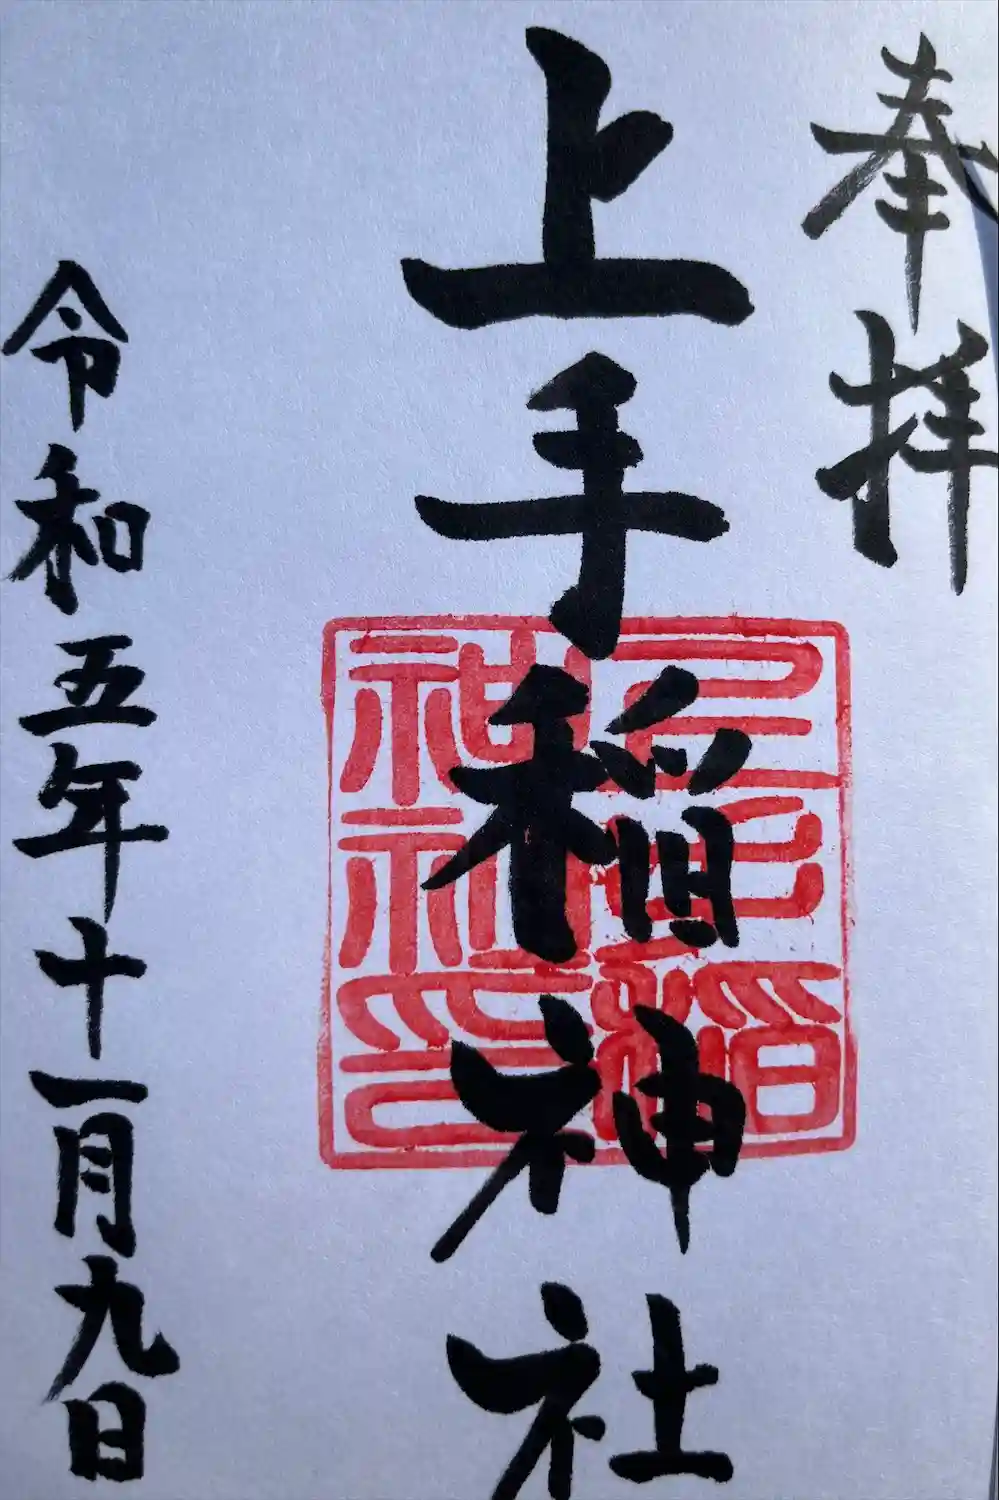 奉拝
上手稲神社
令和五年十一月九日
上手稲
神社印